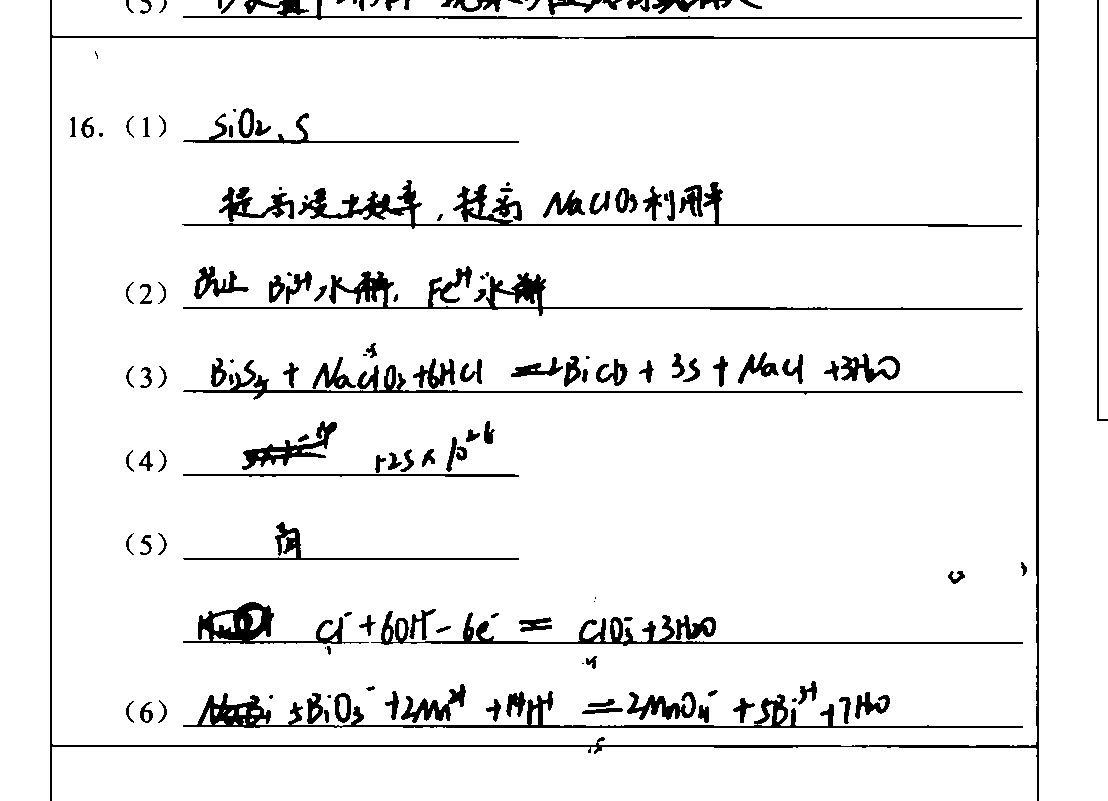 (5)
16. (1) SiO₂、S
提高浸出效率,提高 NaClO₃利用率
(2) 防止 Bi³⁺水解、Fe³⁺水解
(3) Bi₂S₃ + NaClO₃+6HCl = 2BiCl₃ + 3S + NaCl +3H₂O
(4) 1.25×10²⁶
(5) 阴
Cl⁻+6OH⁻-6e⁻ = ClO₃⁻+3H₂O
(6) 5BiO₃⁻ +2Mn²⁺ +14H⁺ =2MnO₄⁻ +5Bi³⁺+7H₂O